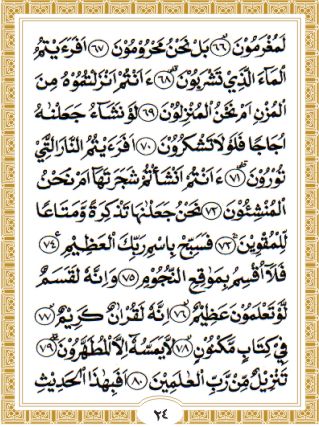 لَمُغْرَمُوْنَ ۙ﴿٦٦﴾ بَلْ نَحْنُ مَحْرُوْمُوْنَ ﴿٦٧﴾ اَفَرَءَيْتُمُ
الْمَآءَ الَّذِيْ تَشْرَبُوْنَ ؕ﴿٦٨﴾ ءَاَنْتُمْ اَنْزَلْتُمُوْهُ مِنَ
الْمُزْنِ اَمْ نَحْنُ الْمُنْزِلُوْنَ ﴿٦٩﴾ لَوْ نَشَآءُ جَعَلْنٰهُ
اُجَاجًا فَلَوْلَا تَشْكُرُوْنَ ﴿٧٠﴾ اَفَرَءَيْتُمُ النَّارَ الَّتِيْ
تُوْرُوْنَ ؕ﴿٧١﴾ ءَاَنْتُمْ اَنْشَاْتُمْ شَجَرَتَهَاۤ اَمْ نَحْنُ
الْمُنْشِـُٔوْنَ ﴿٧٢﴾ نَحْنُ جَعَلْنٰهَا تَذْكِرَةً وَّمَتَاعًا
لِّلْمُقْوِيْنَ ۚ﴿٧٣﴾ فَسَبِّحْ بِاسْمِ رَبِّكَ الْعَظِيْمِ ﴿٧٤﴾
فَلَاۤ اُقْسِمُ بِمَوٰقِعِ النُّجُوْمِ ۙ﴿٧٥﴾ وَاِنَّهٗ لَقَسَمٌ
لَّوْ تَعْلَمُوْنَ عَظِيْمٌ ۙ﴿٧٦﴾ اِنَّهٗ لَقُرْاٰنٌ كَرِيْمٌ ۙ﴿٧٧﴾
فِيْ كِتٰبٍ مَّكْنُوْنٍ ۙ﴿٧٨﴾ لَّا يَمَسُّهٗۤ اِلَّا الْمُطَهَّرُوْنَ ؕ﴿٧٩﴾
تَنْزِيْلٌ مِّنْ رَّبِّ الْعٰلَمِيْنَ ﴿٨٠﴾ اَفَبِهٰذَا الْحَدِيْثِ
٢٤